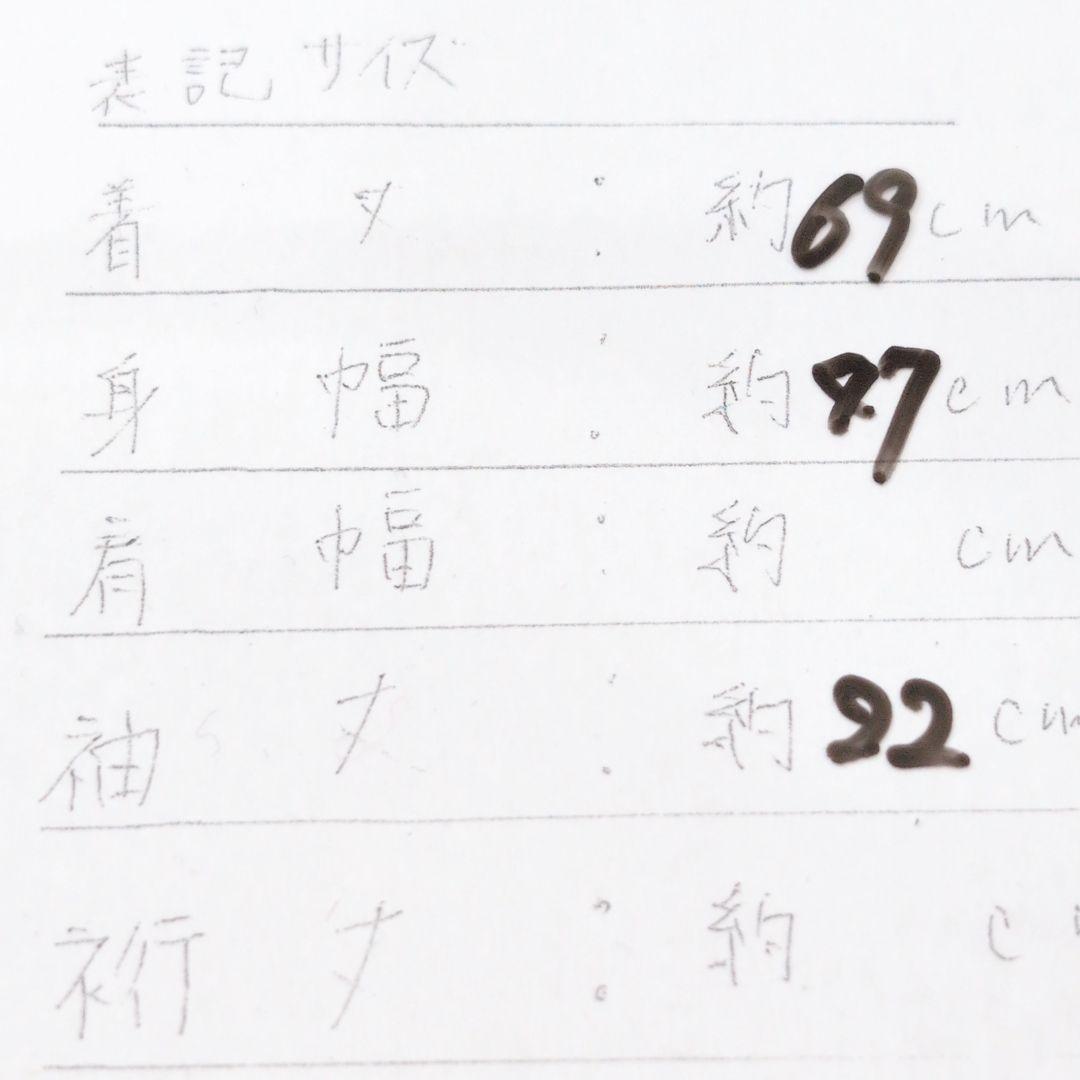 表記サイズ
着丈:約69cm
身幅:約 cm
肩幅:約 cm
袖丈:約22cm
裄丈:約 c